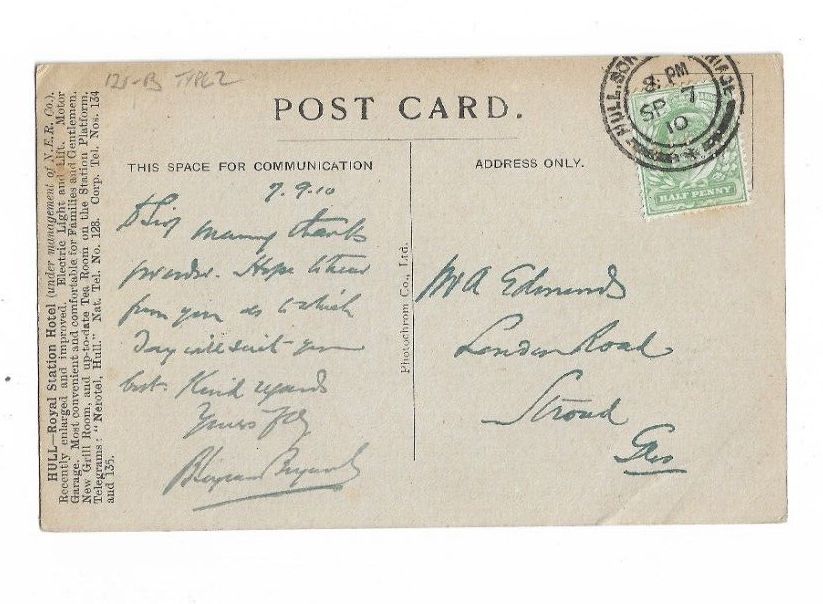 121-B TYPE 2
POST CARD.
THIS SPACE FOR COMMUNICATION
ADDRESS ONLY.
HULL—Royal Station Hotel (under management of N.E.R. Co.).
Recently enlarged and improved. Electric Light and Lift. Motor
Garage. Most convenient and comfortable for Families and Gentlemen.
New Grill Room, and up-to-date Tea Room on the Station Platform.
Telegrams: "Nerotel, Hull." Nat. Tel. No. 128. Corp. Tel. Nos. 134
and 135.
7.9.10
D Sir
Many thanks
Hope to hear
from you as to which
day will suit you
best. Kind regards
Yours
Photochrom Co., Ltd.
Mr A Edmunds
London Road
Stroud
Glos
HULL.
8. PM
SP 7
10
HALF PENNY